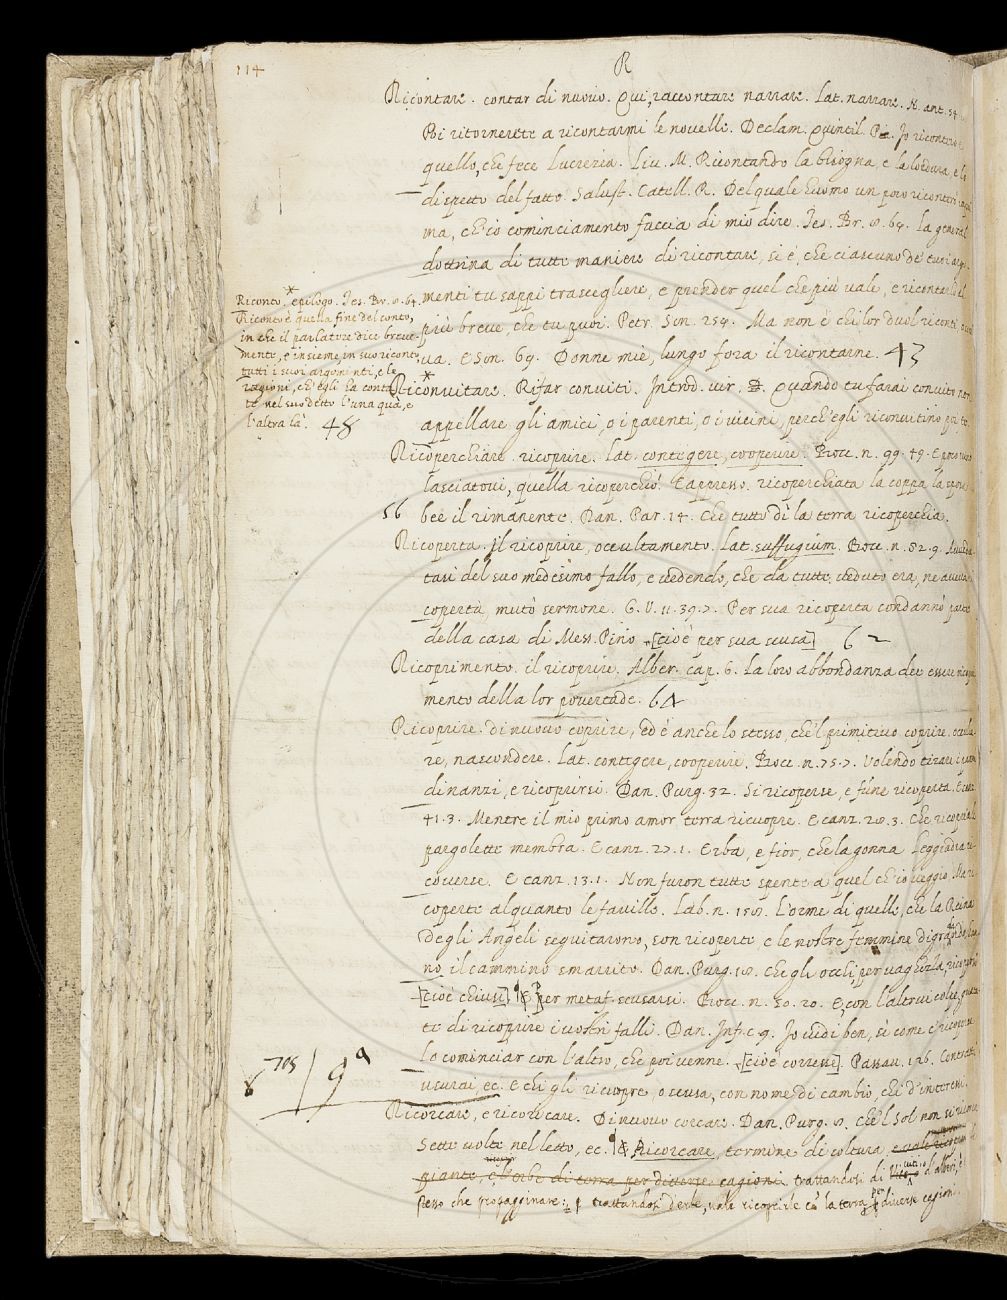 114
R
Ricontare. contar di nuovo. Qui, raccontare narrare. Lat. narrare. N. ant. 54
Poi ritornerete a ricontarmi le novelle. Declam. Quintil. P. Io
quello, che fece Lucrezia. Liv. M. Ricontando la bisogna, e la lordura, e lo
dispetto del fatto. Salust. Catell. R. Del quale huomo un poco
ma, ch'io cominciamento faccia di mio dire. Tes. Br. 8. 64. La general
dottrina di tutte maniere di ricontare, si è, che ciascuno de' tuoi
menti tu sappi trascegliere, e prender quel che più vale, e ricontarlo il
più breve, che tu puoi. Petr. Son. 254. Ma non è chi lor duol riconti, o
va. E Son. 69. Donne mie, lungo fora il ricontarne. 43
Riconto, * epilogo. Tes. Br. 8. 64.
Riconto è quella fine del conto,
in che il parlatore dice breve-
mente, e insieme, in suo riconto,
tutti i suoi argomenti, e le
ragioni, ch'egli ha conta
te nel suo detto l'una quà, e
l'altra là. 48
Riconvitare. * Rifar conviti. Introd. vir. Quando tu farai convito non
appellare gli amici, o i parenti, o i vicini, perch'egli riconvitino
Ricoperchiare. ricoprire. Lat. contegere, cooperire. Bocc. n. 99. 49. E poco
lasciatovi, quella ricoperchiò. E appresso. ricoperchiata la coppa, la
56 bee il rimanente. Dan. Par. 14. Che tutto dì la terra ricoperchia.
Ricoperta. Il ricoprire, occultamento. Lat. suffugium. Bocc. n. 52. 9.
tasi del suo medesimo fallo, e vedendo, che da tutte veduto era, ne aveva
coperta, mutò sermone. G. V. 11. 39. 7. Per sua ricoperta condannò
della casa di Mess. Pino [cioè per sua scusa] 62
Ricoprimento. il ricoprire. Alber. cap. 6. La loro abbondanza dee essere
mento della lor povertade. 64
Ricoprire. di nuovo coprire, ed è anche lo stesso, che'l primitivo coprire.
re, nascondere. Lat. contegere, cooperire. Bocc. n. 75. 7. Volendo tirare i panni
dinanzi, e ricoprirsi. Dan. Purg. 32. Si ricoperse, e funne ricoperta. E canz.
41. 3. Mentre il mio primo amor terra ricuopre. E canz. 28. 3. Che
pargolette membra. E canz. 27. 1. Erba, e fior, che la gonna Leggiadra
coverse. E canz. 13. 1. Non furon tutte spente a quel ch'io veggio, Ma
coperte alquanto le faville. Lab. n. 158. L'orme di quelle, che la Reina
degli Angeli seguitarono, son ricoperte, e le nostre femmine
no il cammino smarrito. Dan. Purg. 18. Che gli occhi, per vaghezza,
[cioè chiusi] ¶ E per metaf. scusarsi. Bocc. n. 50. 20. E, con l'altrui colpe,
te di ricoprire i vostri falli. Dan. Inf. c. 9. Io vidi ben, sì come
Lo cominciar con l'altro, che poi venne. [cioè corresse]. Passav. 126.
705 / 99
usurai, ec. E chi gli ricuopre, o scusa, con nome di cambio, chi d'interessi
Ricorcare, e ricoricare. Di nuovo corcare. Dan. Purg. 8. Che'l sol non si
Sette volte nel letto, ec. ¶ E Ricorcare, termine di coltura,
piante, e l'erbe di terra per diverse cagioni. trattandosi di viti, o d'alberi, è
stesso che propagginare: trattandosi d'erbe, vale ricoprirle cō la terra per diverse cagioni.